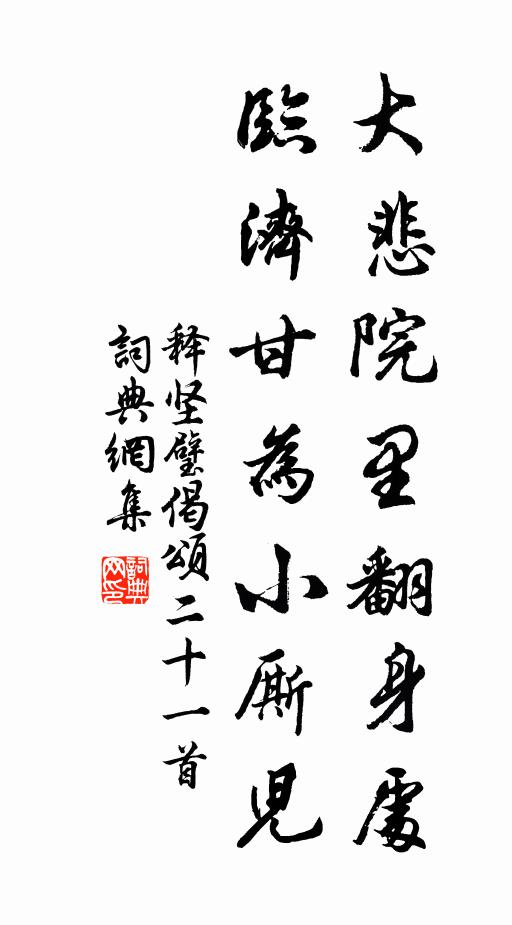 大悲院里翻身處
臨濟甘為小厮兒
释坚璧偈頌二十一首
詞典網集
詞典网印